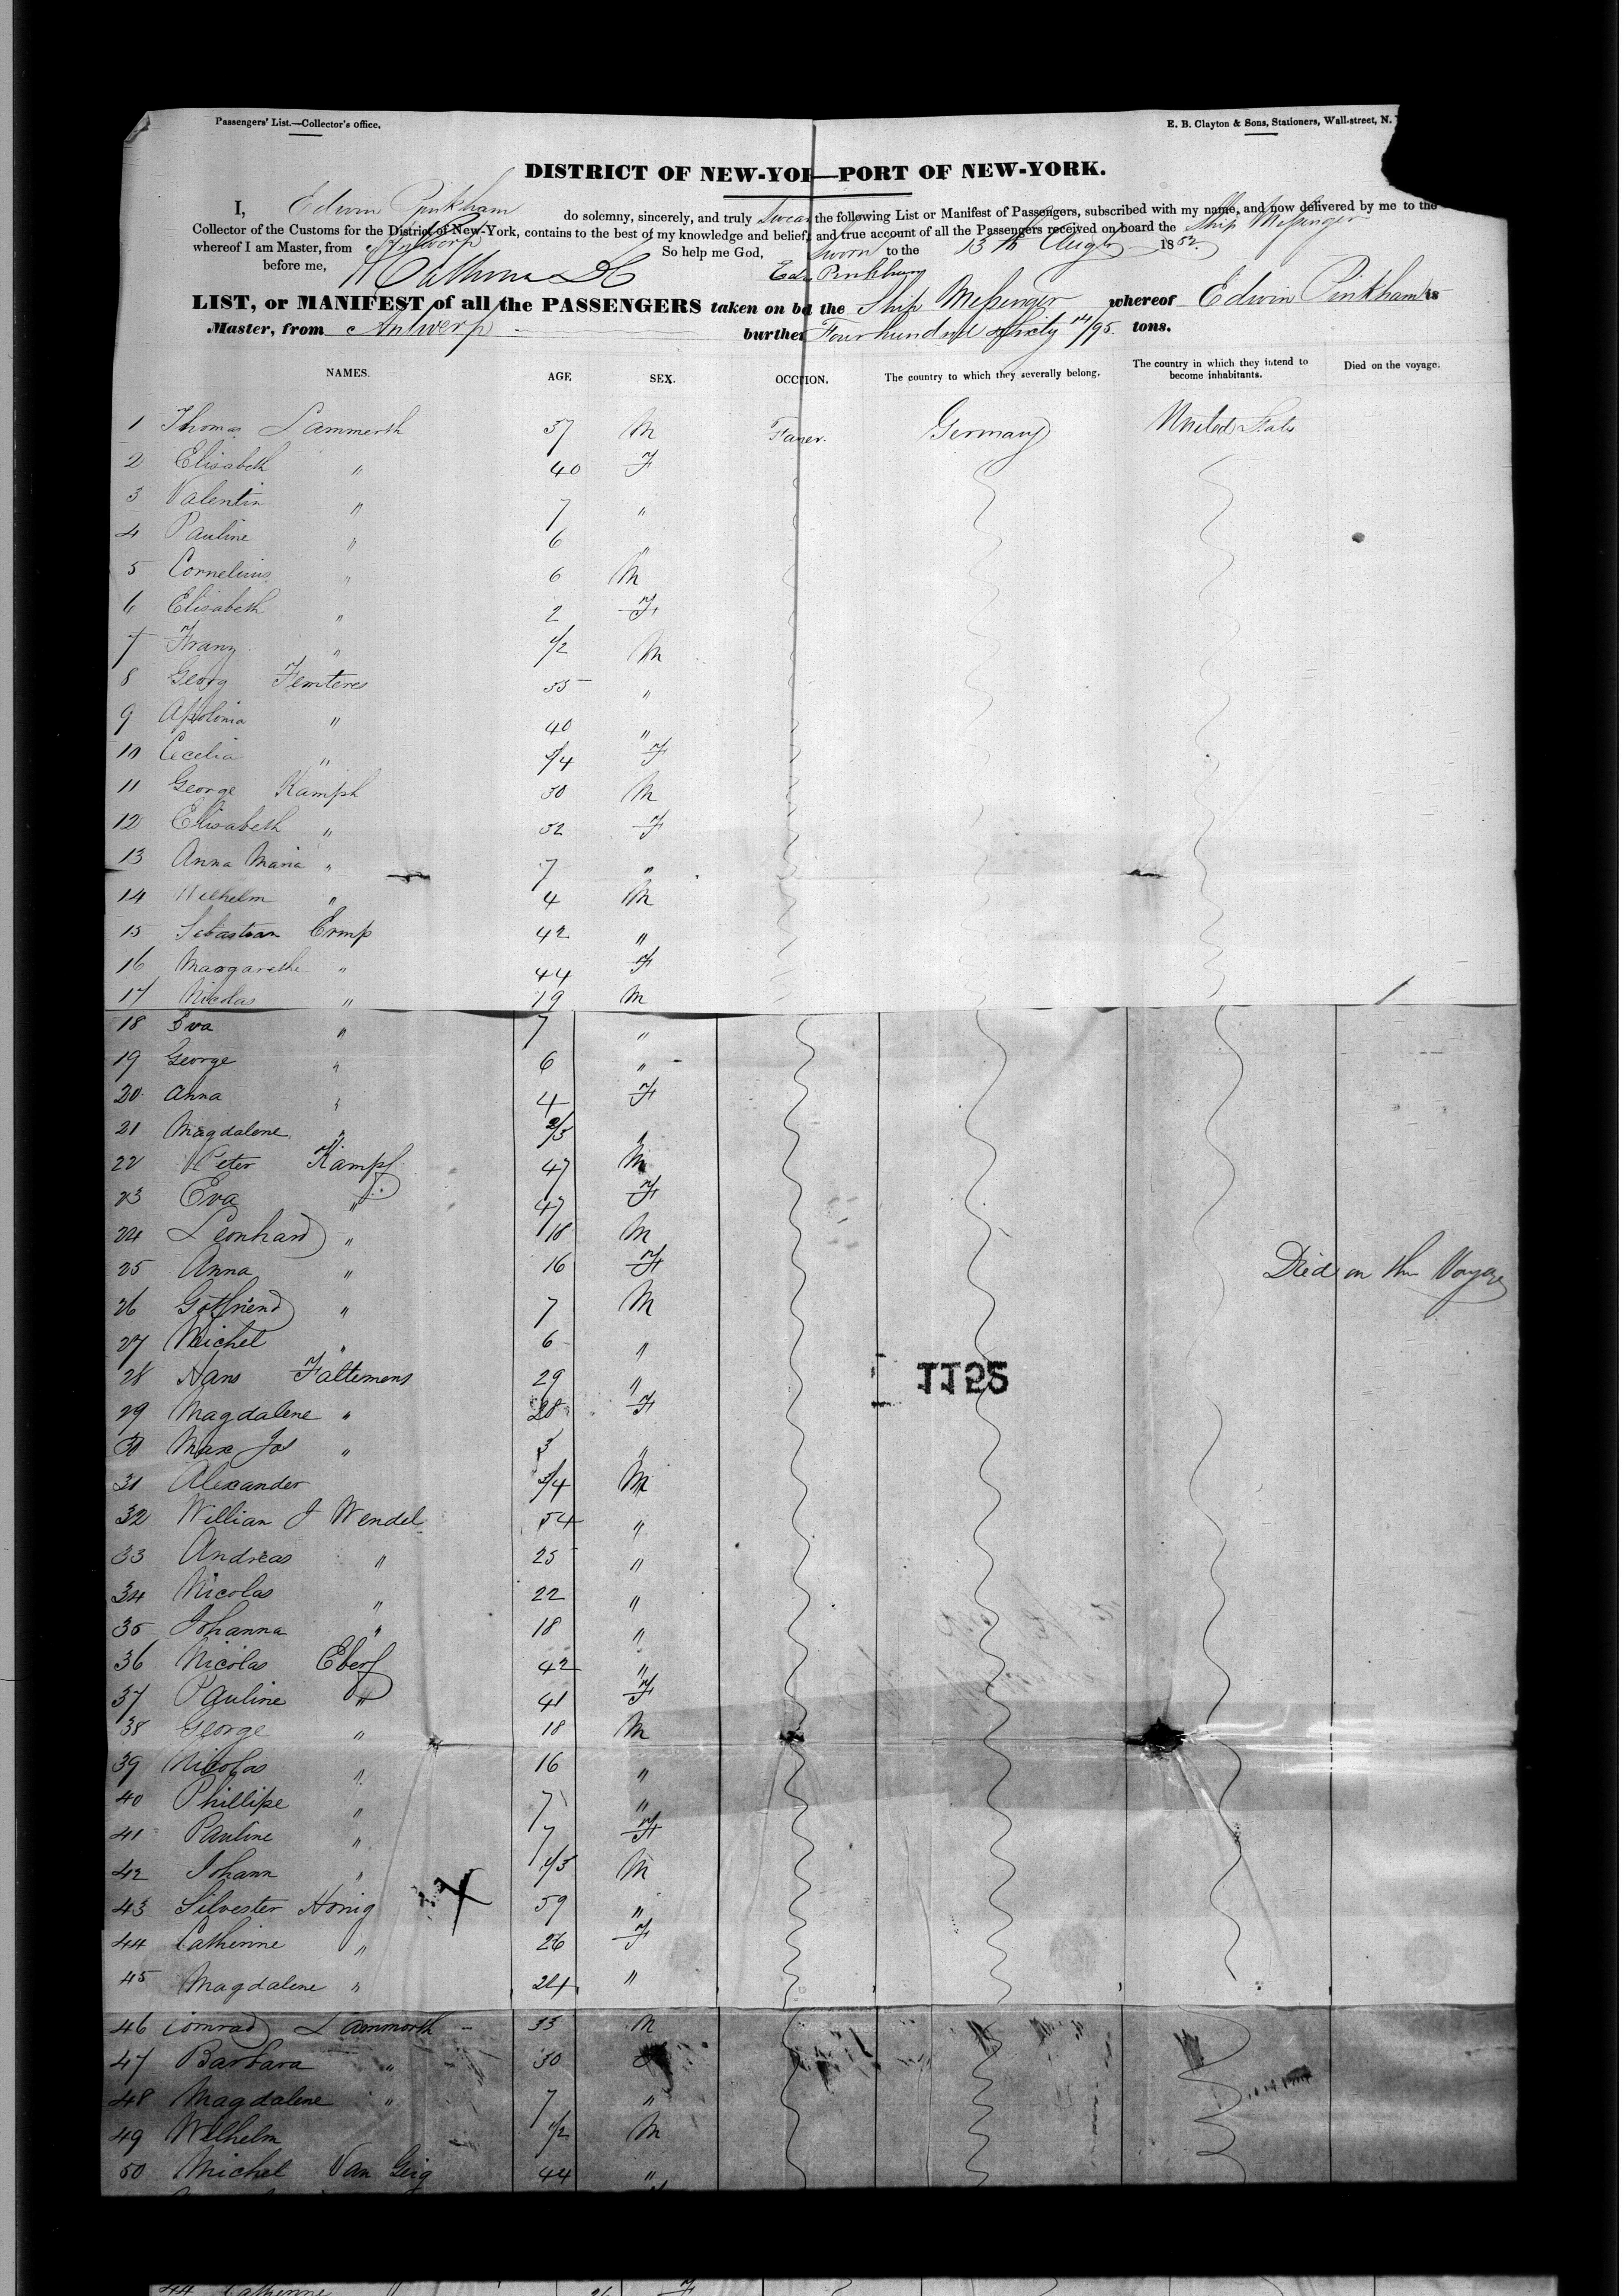 Passengers' List.—Collector's office.
E. B. Clayton & Sons, Stationers, Wall-street, N.
DISTRICT OF NEW-YOR—PORT OF NEW-YORK.
I, Edwin Pinkham do solemny, sincerely, and truly Swear the following List or Manifest of Passengers, subscribed with my name, and now delivered by me to the
Collector of the Customs for the District of New-York, contains to the best of my knowledge and belief, and true account of all the Passengers received on board the Ship Messenger
whereof I am Master, from Antwerp So help me God, Sworn to the 13th Augt 1852.
before me, Edw Pinkham
LIST, or MANIFEST of all the PASSENGERS taken on bd the Ship Messenger whereof Edwin Pinkham is
Master, from Antwerp burthen Four hundred & sixty 14/95 tons.
NAMES. AGE SEX. OCCTION. The country to which they severally belong. The country in which they intend to become inhabitants. Died on the voyage.
1 Thomas Lammerth 37 M Farmer. Germany United Stats
2 Elisabeth " 40 F
3 Valentin " 7 "
4 Pauline " 6 "
5 Cornelius " 6 M
6 Elisabeth " 2 F
7 Franz " 1/2 M
8 Georg 35 "
9 Apolonia " 40 "
10 Cecelia " 3/4 F
11 George Kamph 30 M
12 Elisabeth " 32 F
13 Anna Maria " 7 "
14 Wilhelm " 4 M
15 Sebastian Ermp 42 "
16 Margarethe " 44 F
17 Nicolas " 19 M
18 Eva " 7 "
19 George " 6 "
20 Anna " 4 F
21 Magdalene " 2/3 "
22 Peter Kampf 47 M
23 Eva " 47 F
24 Leonhard " 18 M
25 Anna " 16 F Died on the Voyage
26 Gotfriend " 7 M
27 Michel " 6 "
28 Hans Faltemens 29 "
29 Magdalene " 28 F
30 Max Jos " 3 "
31 Alexander 3/4 M
32 Willian J Wendel 54 "
33 Andreas " 25 "
34 Nicolas " 22 "
35 Johanna " 18 "
36 Nicolas Eberf 42 "
37 Pauline " 41 F
38 George " 18 M
39 Nicolas " 16 "
40 Phillipe " 7 "
41 Pauline " 7 F
42 Johann " 1/3 M
43 Silvester Honig 59 "
44 Catherine " 26 F
45 Magdalene " 24 "
46 Conrad Lammorth 33 M
47 Barbara " 30
48 Magdalene " 7 "
49 Wilhelm 1/2 M
50 Michel Van Geig 44 "
44 Catherine